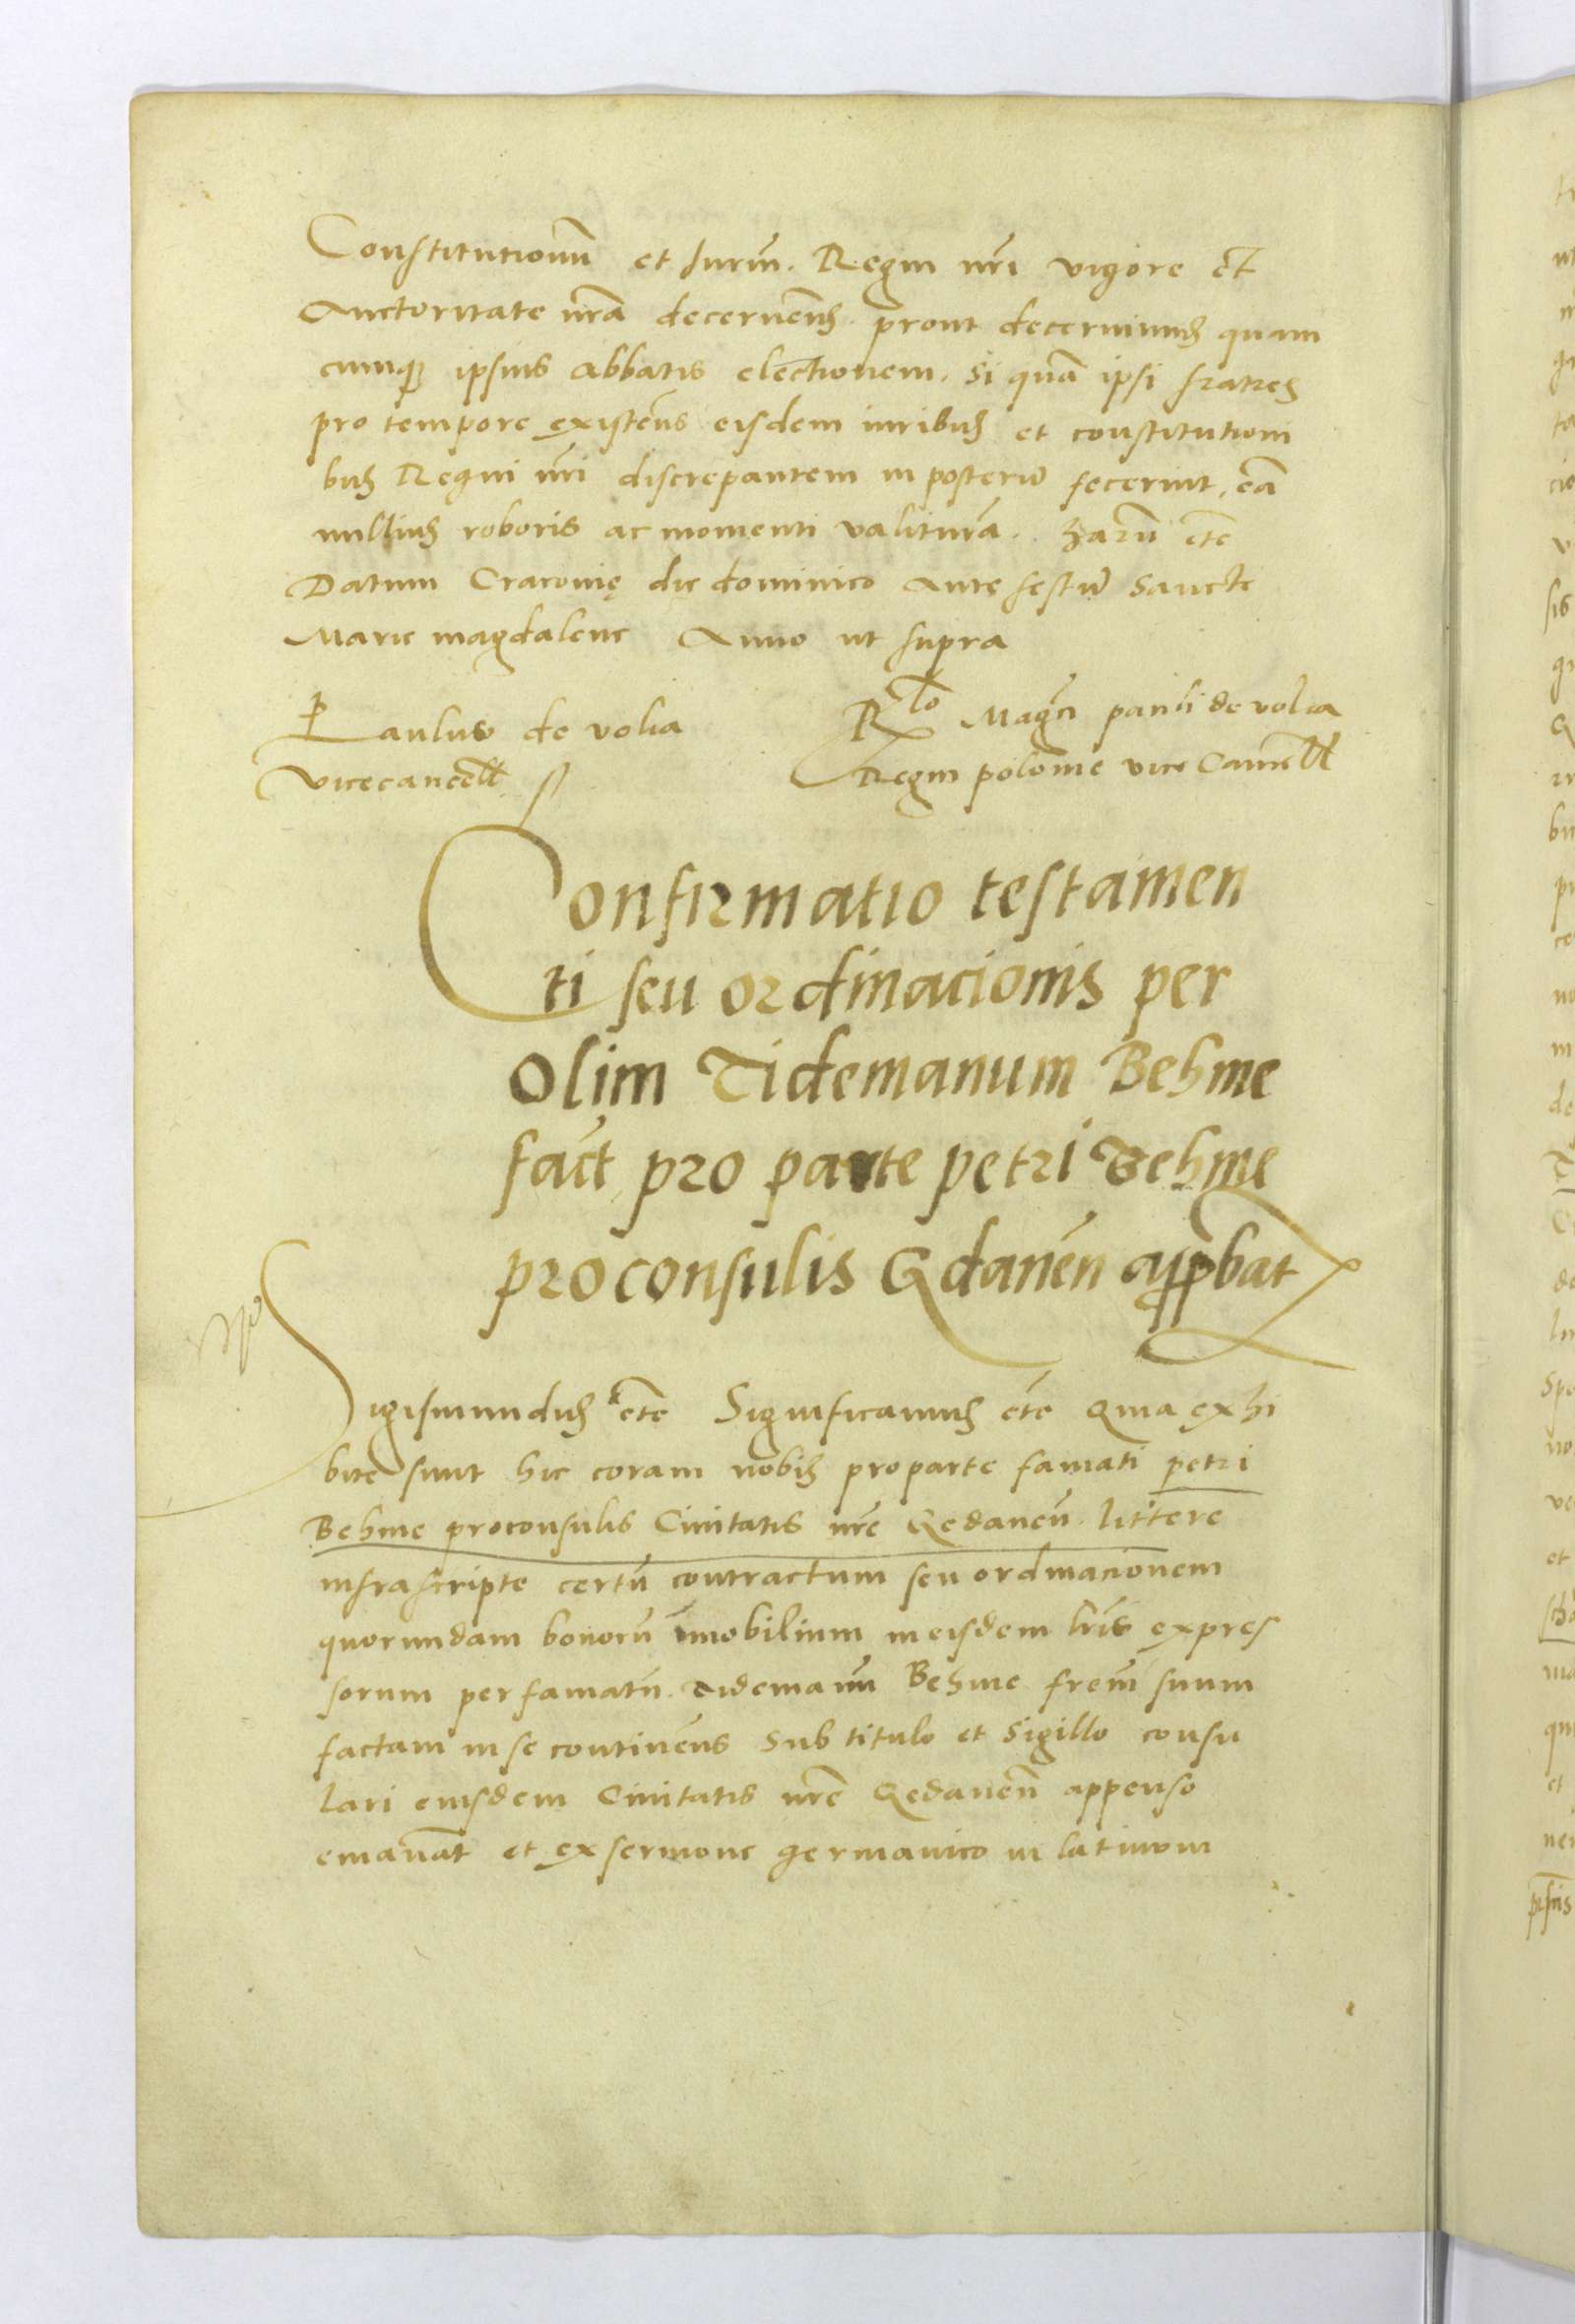 Constitutionũ et Iuriũ. Regni nr̃i vigore et
Auctoritate nr̃a decernen̄. prout decernimus quam
cumqꝫ ipsius abbatis electionem. Si quã ipsi fratres
pro tempore existen̄s eisdem iuribus et constitutioni
bus Regni nr̃i discrepantem in posterũ fecerint, eã
nullius roboris ac momenti valiturã. Harũ etc̃
Datum Cracovię die dominico Ante festũ Sancte
Marie magdalene Anno ut supra
Paulus de volia
vicecancell ss
Rlo Magc̃i pauli de volia
Regni polonie vice Cancell
Confirmatio testamen
ti seu ordinacionis per
Olim Tidemanum Behme
fact pro parte petri Behme
proconsulis Gdanen̄ approbat
Sigismundus etc̃ Significamus etc̃ Quia exhi
bite sunt hic coram nobis pro parte famati petri
Behme proconsulis Civitatis nr̃e Gedanen̄. littere
infrascripte certũ contractum seu ordinacionem
quorundam bonorũ imobilium in eisdem lr̃is expres
sorum per famatũ. Tidemanũ Behme frem̃ suum
factam in se continen̄s Sub titulo et Sigillo consu
lari eiusdem Civitatis nr̃e Gedanen̄ appenso
emanat̃ et ex sermone germanico in latinum